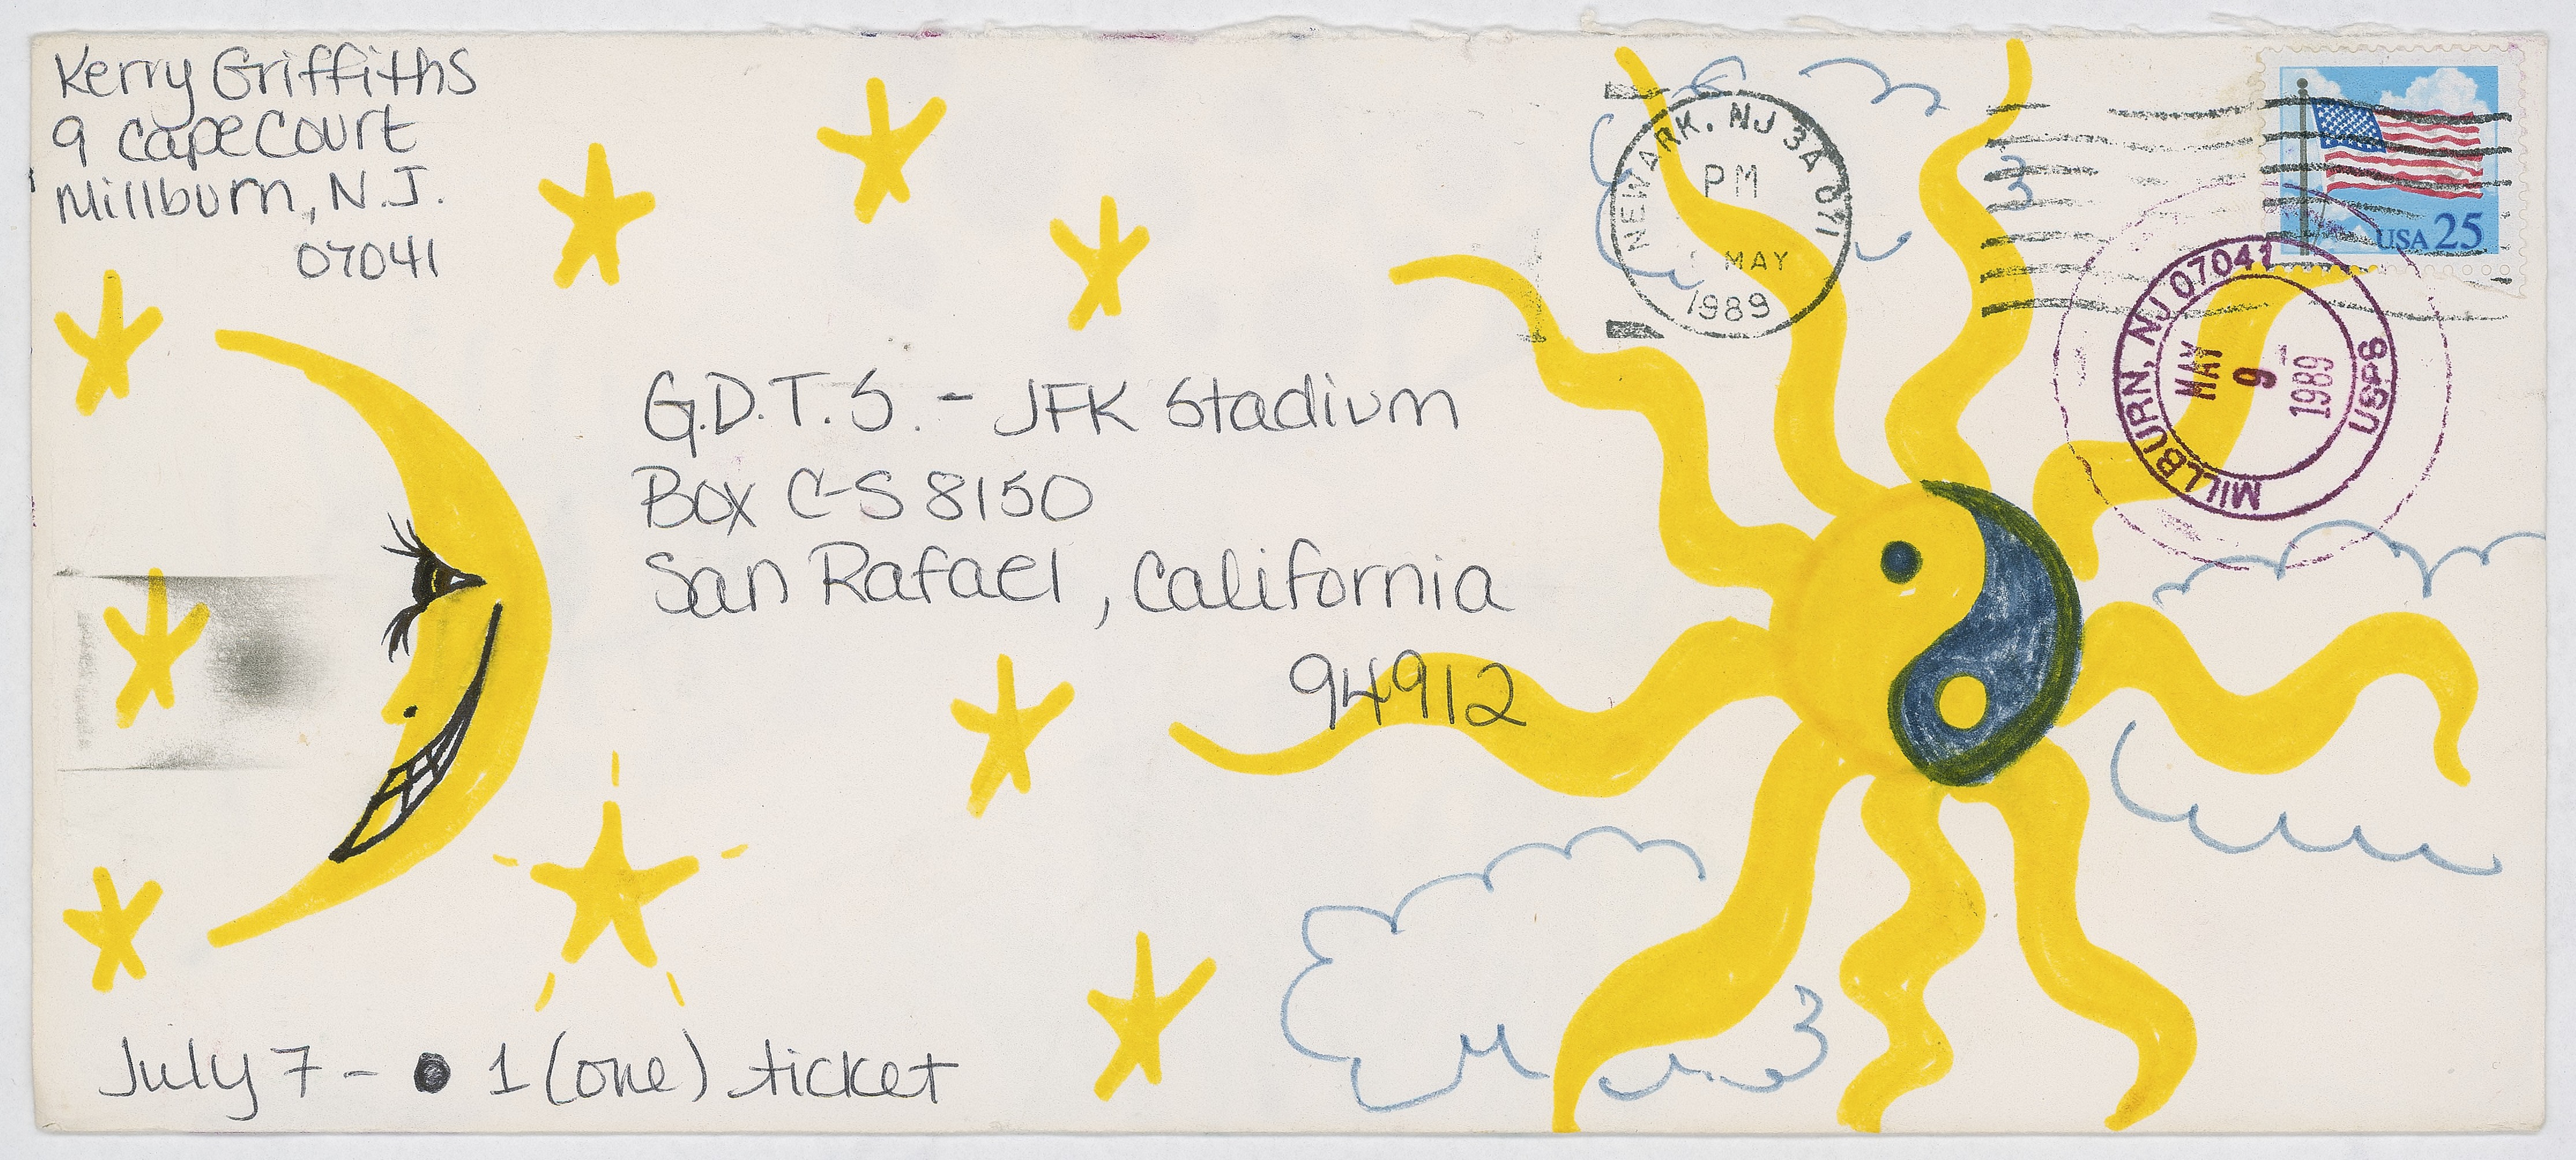 Kerry Griffiths
9 Cape Court
Millburn, N.J.
07041
NEWARK, NJ 3A 071
PM
MAY
1989
USA 25
MILLBURN, NJ 07041
MAY
9
1989
USPS
G.D.T.S. - JFK Stadium
Box C-S 8150
San Rafael, California
94912
July 7 - 1 (one) ticket